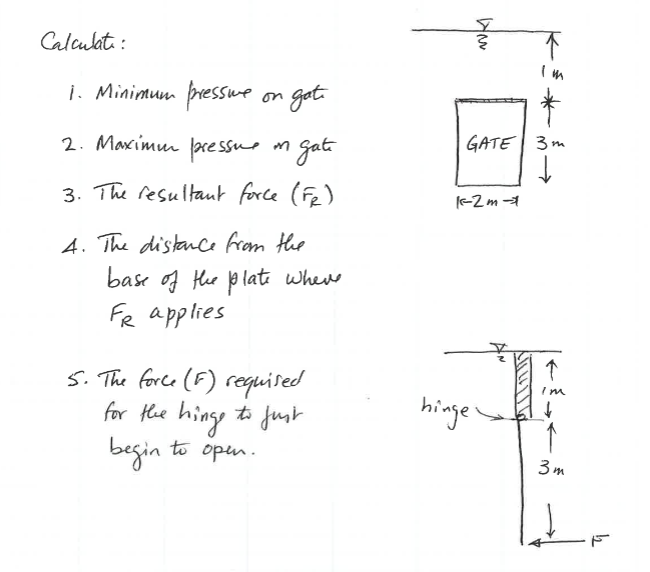 Calculate:
1. Minimum pressure on gate
2. Maximum pressure on gate
3. The resultant force (FR)
4. The distance from the
base of the plate where
FR applies
5. The force (F) required
for the hinge to just
begin to open.
1 m
GATE
3 m
2 m
hinge
1 m
3 m
F